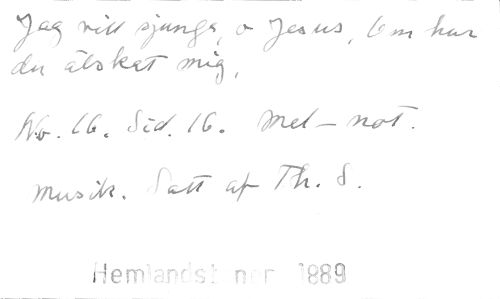 Jag vill sjunga, o Jesus, Om hur
du älskat mig,
No. 16. Sid. 16. Mel-not.
Musik. Satt af Th. S.
Hemlandst ner 1889